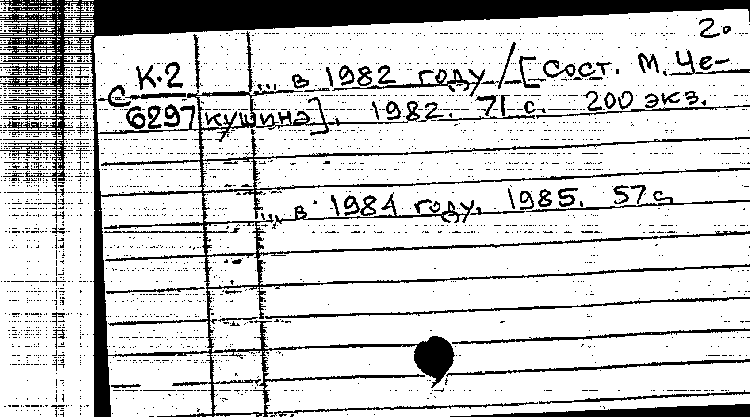 2.
К-2 ... в 1982 году / [Сост. М. Че-
С 6297 кушина]. 1982. 71 с. 200 экз.
... в 1984 году. 1985. 57 с.